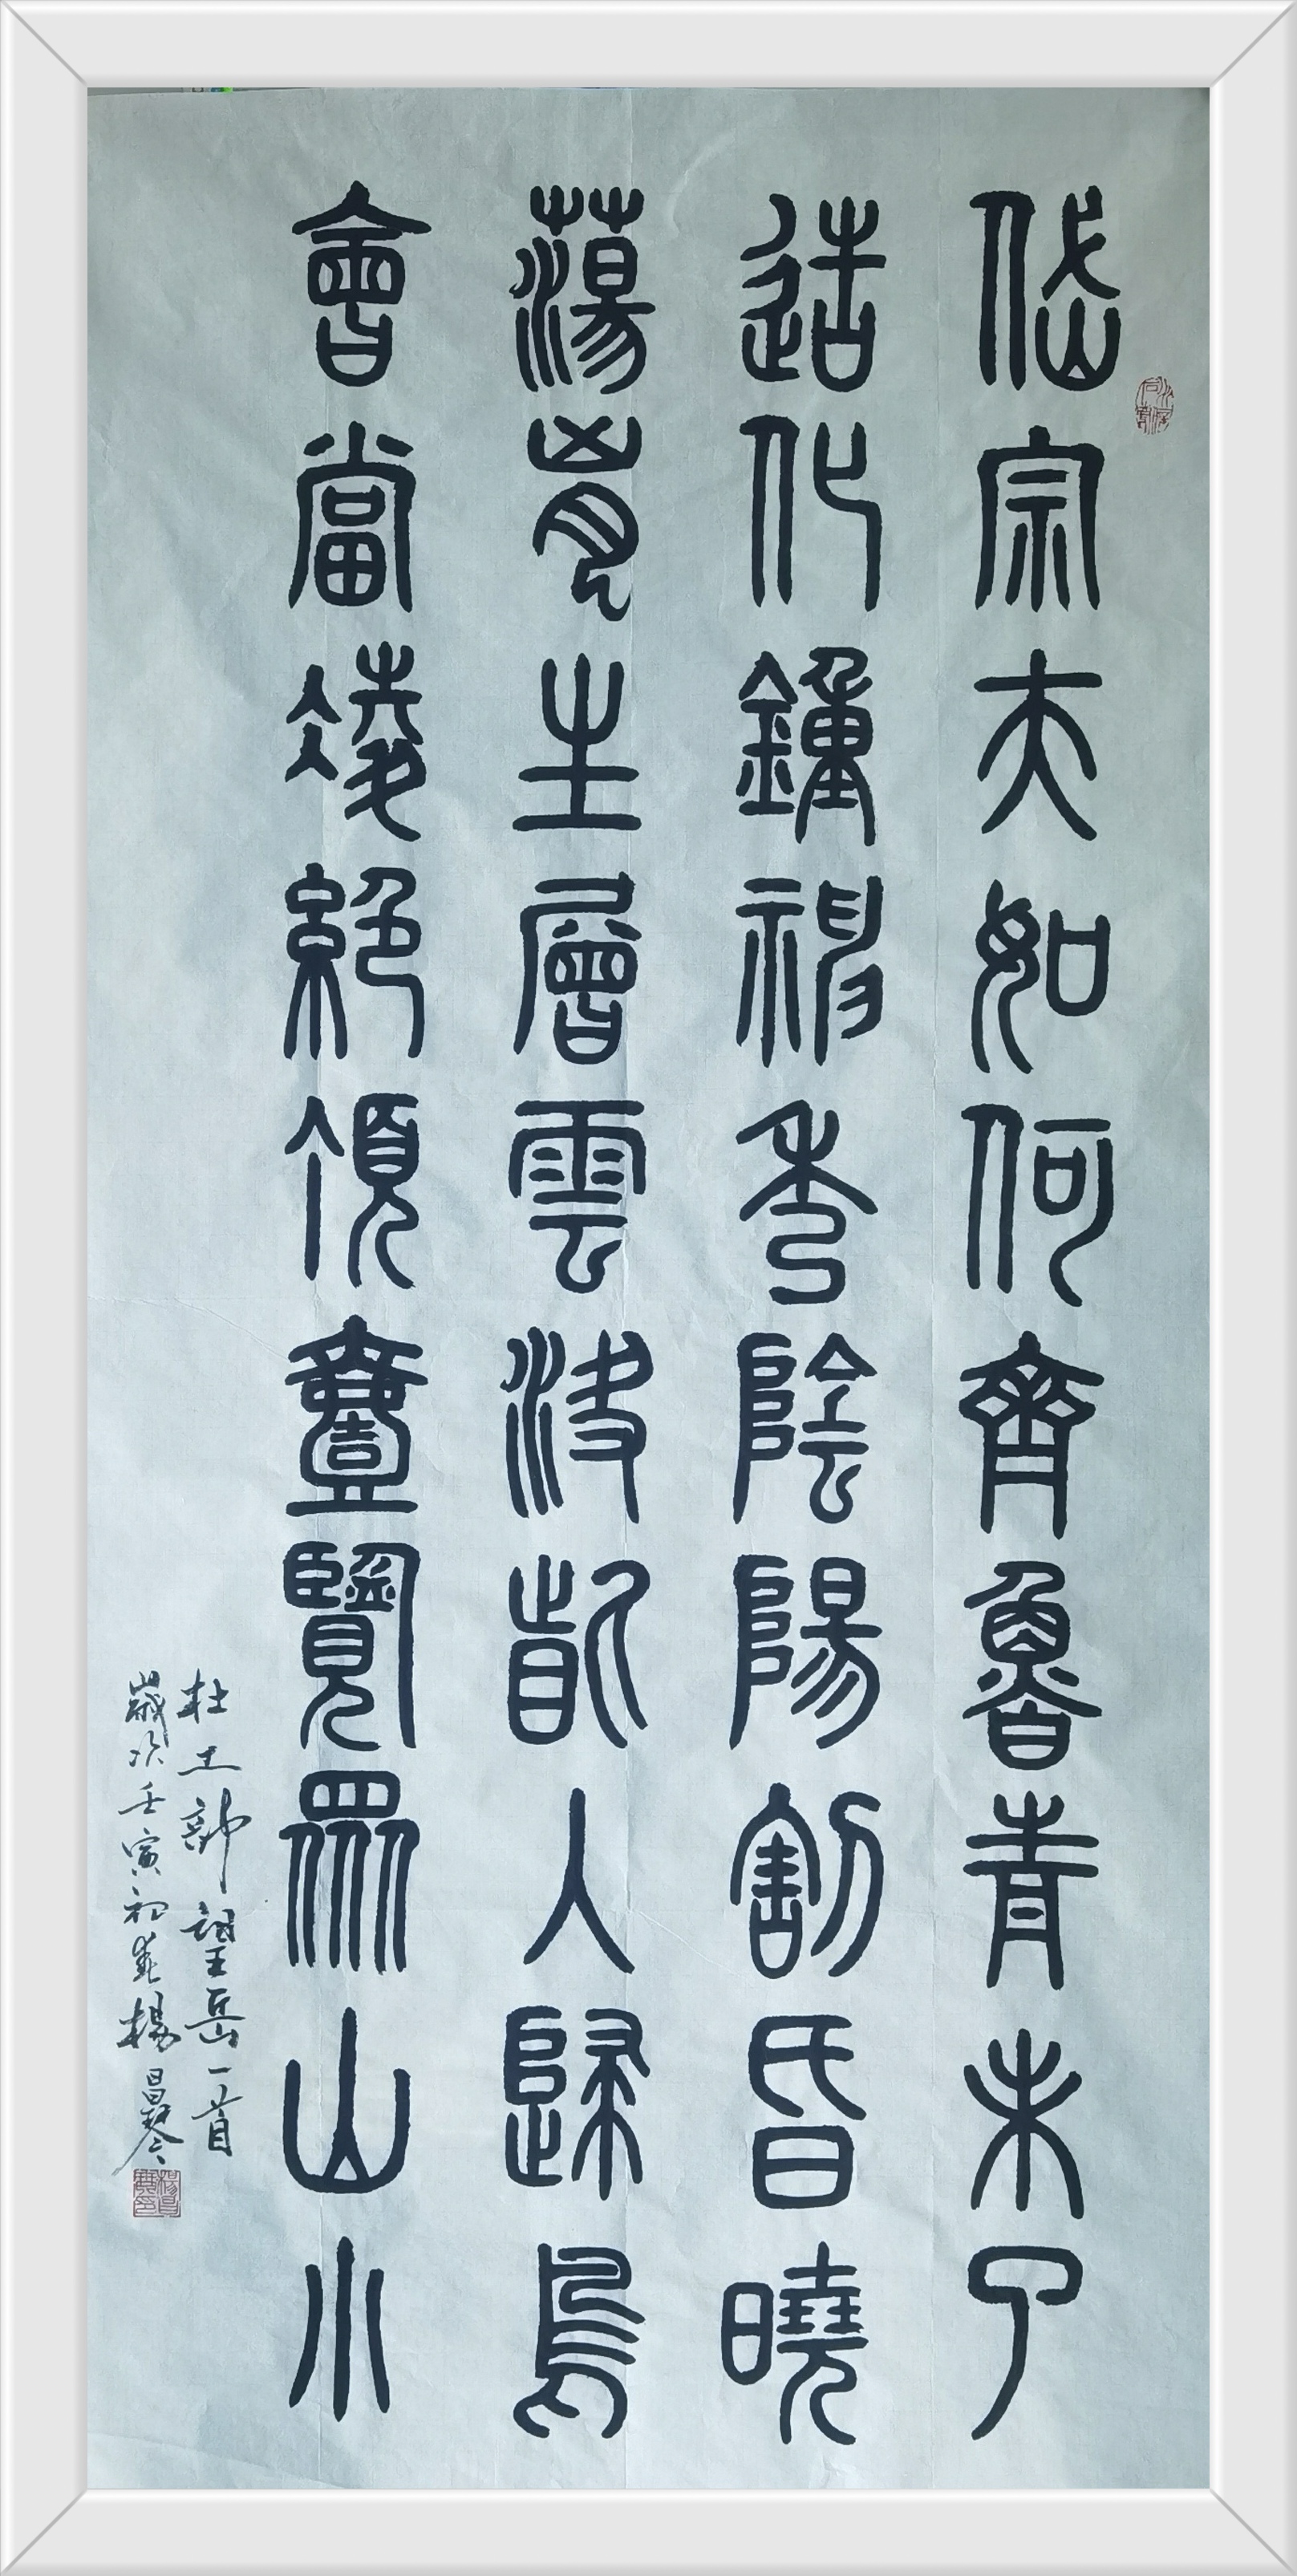 岱宗夫如何齊魯青未了
造化鍾神秀陰陽割昏曉
蕩胷生層雲決眥入歸鳥
會當凌絕頂壹覽眾山小
杜工部望岳一首
歲次壬寅初春楊昌琴